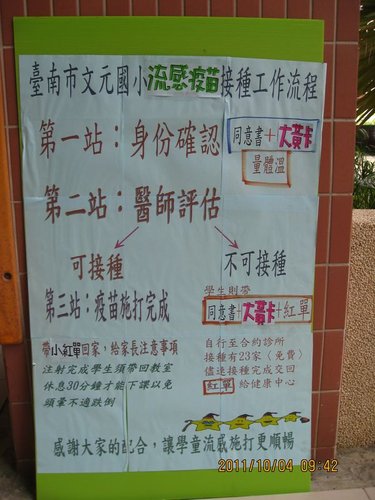 臺南市文元國小流感疫苗接種工作流程
第一站：身份確認
同意書+大黃卡
量體溫
第二站：醫師評估
可接種
不可接種
第三站：疫苗施打完成
學生則帶
同意書+大黃卡+紅單
帶小紅單回家，給家長注意事項
注射完成學生須帶回教室
休息30分鐘才能下課以免
頭暈不適跌倒
自行至合約診所
接種有23家（免費）
儘速接種完成交回
紅單給健康中心
感謝大家的配合，讓學童流感施打更順暢
2011/10/04 09:42